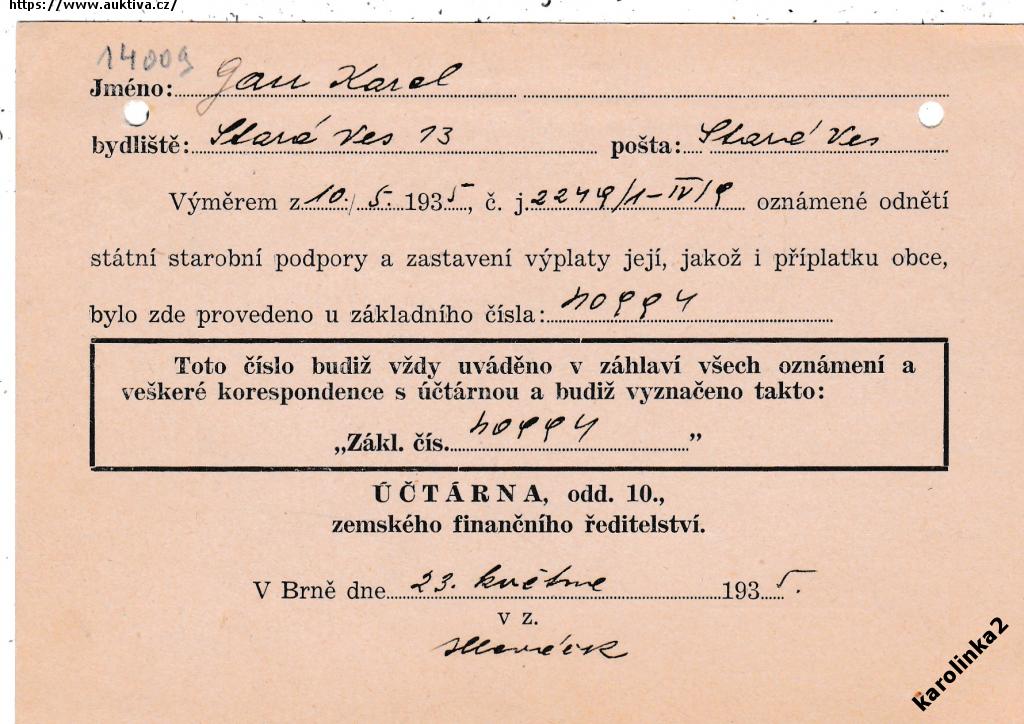 https://www.auktiva.cz/
14009
Jméno: Jan Karel
bydliště: Stará Ves 13 pošta: Stará Ves
Výměrem z 10./5. 1935, č. j. 2249/1-IV/9 oznámené odnětí
státní starobní podpory a zastavení výplaty její, jakož i příplatku obce,
bylo zde provedeno u základního čísla:
Toto číslo budiž vždy uváděno v záhlaví všech oznámení a
veškeré korespondence s účtárnou a budiž vyznačeno takto:
„Zákl. čís. ”
ÚČTÁRNA, odd. 10.,
zemského finančního ředitelství.
V Brně dne 23. května 1935.
v z.
karolinka2